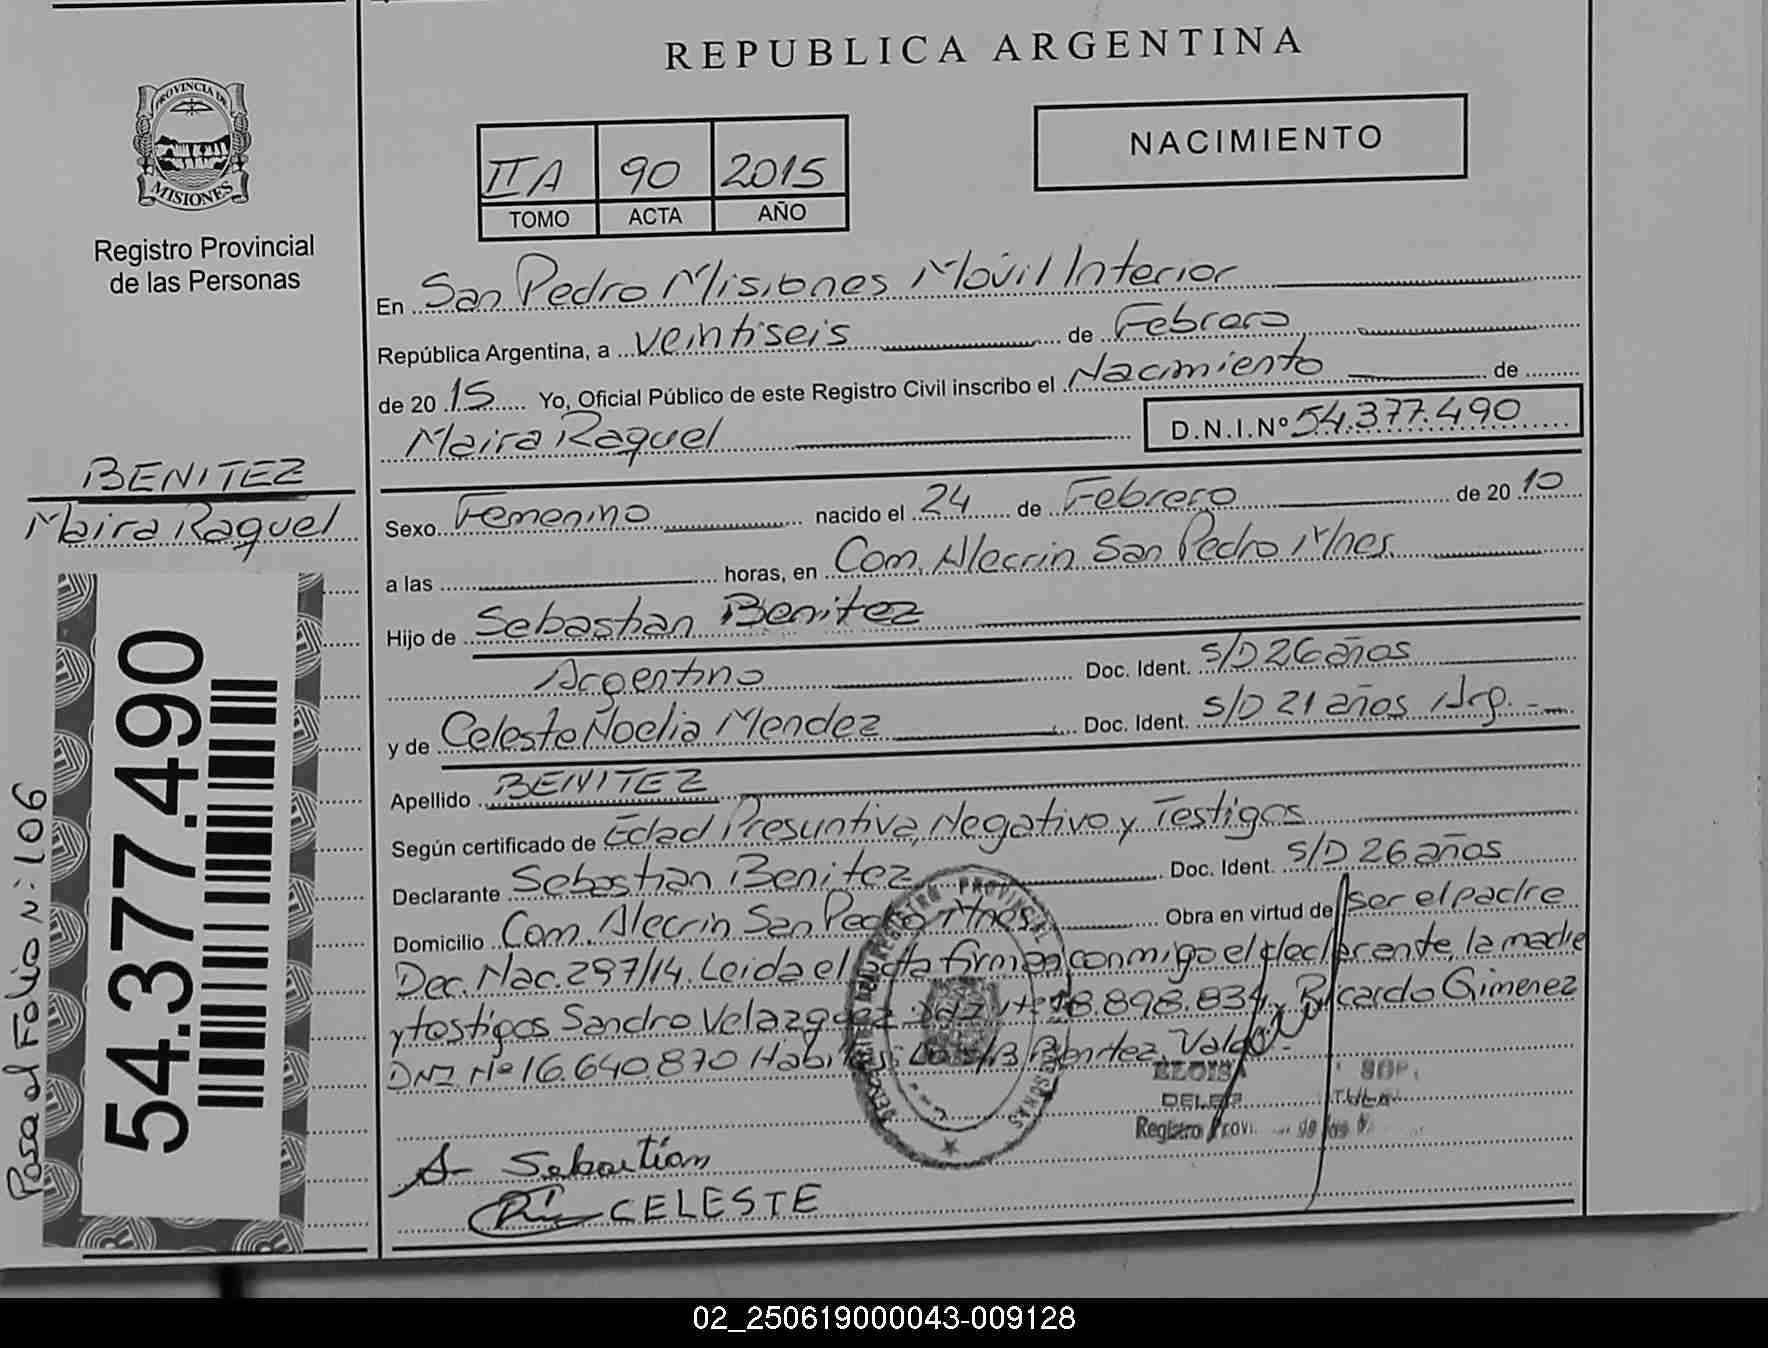 REPUBLICA ARGENTINA
PROVINCIA DE
MISIONES
Registro Provincial
de las Personas
IIA 90 2015
TOMO ACTA AÑO
NACIMIENTO
En San Pedro Misiones Movil Interior
República Argentina, a veintiseis de Febrero
de 2015 Yo, Oficial Público de este Registro Civil inscribo el Nacimiento de
Maira Raquel D.N.I.Nº 54.377.490
BENITEZ
Maira Raquel
Sexo Femenino nacido el 24 de Febrero de 2010
a las horas, en Com. Alecrin San Pedro Mnes.
Hijo de Sebastian Benitez
Argentino Doc. Ident. S/D 26 años
y de Celeste Noelia Mendez Doc. Ident. S/D 21 años Arg.
Apellido BENITEZ
Según certificado de Edad Presuntiva, Negativo y Testigos
Declarante Sebastian Benitez Doc. Ident. S/D 26 años
Domicilio Com. Alecrin San Pedro Mnes. Obra en virtud de ser el padre
Dec. Nac. 297/14. Leida el acta firman conmigo el declarante, la madre
y testigos Sandro Velazquez DNI Nº 18.898.834 y Ricardo Gimenez
DNI Nº 16.640.870 Benitez, Vale.
ELOISA
Registro
A- Sebastián
CELESTE
54.377.490
Pasa al Folio N: 106
02_250619000043-009128